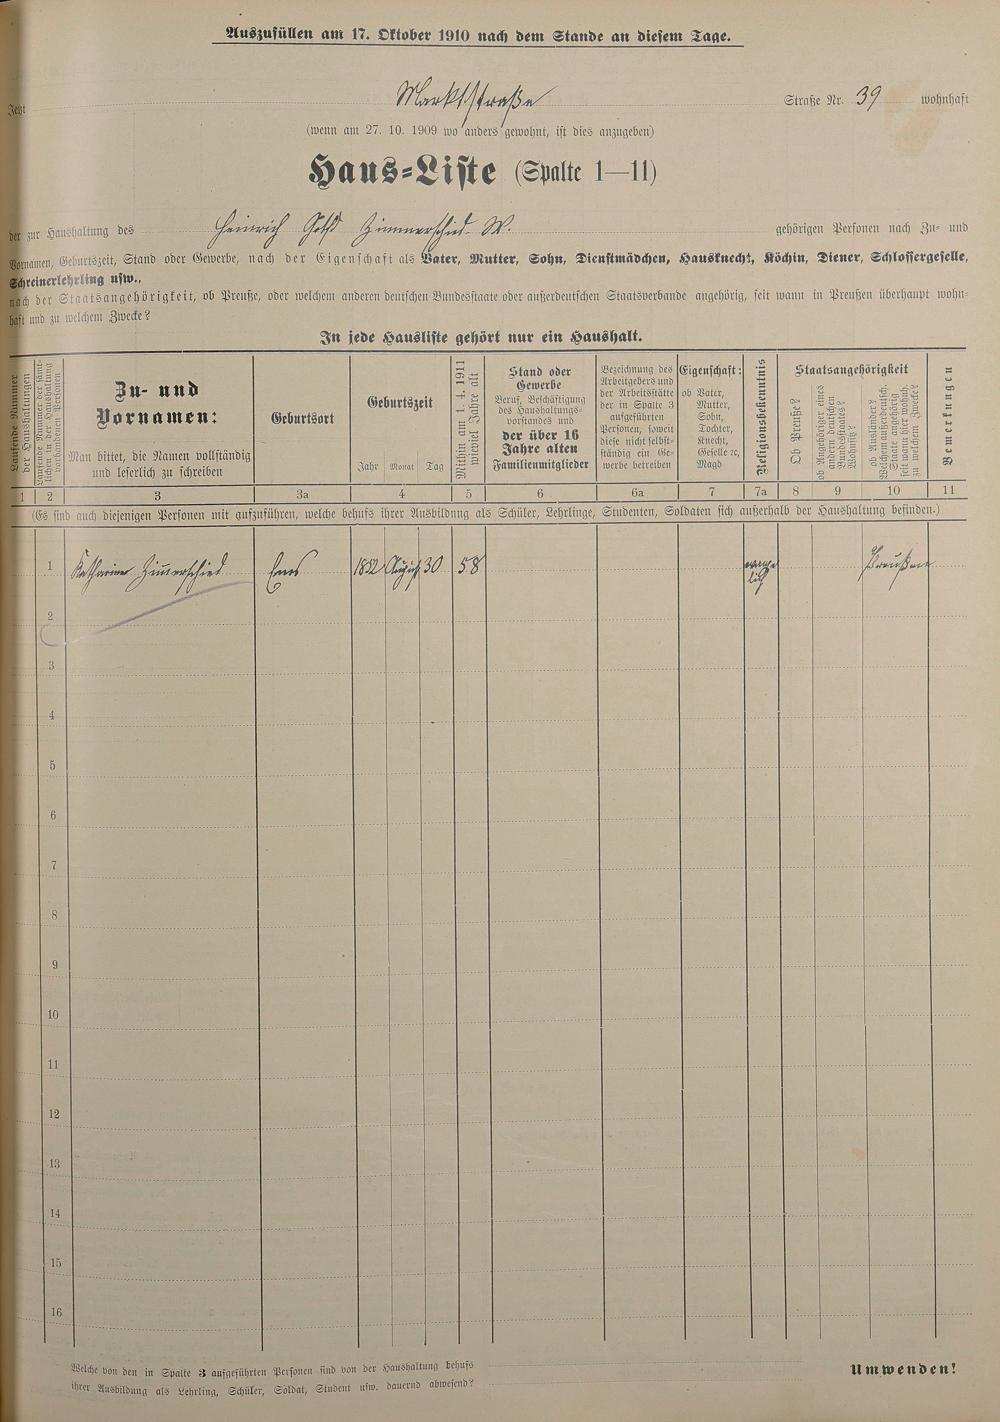 Auszufüllen am 17. Oktober 1910 nach dem Stande an diesem Tage.
Jetzt Marktstraße Straße Nr. 39 wohnhaft
(wenn am 27. 10. 1909 wo anders gewohnt, ist dies anzugeben)
Haus-Liste (Spalte 1—11)
der zur Haushaltung des Heinrich Zimmerschied W. gehörigen Personen nach Zu- und
Vornamen, Geburtszeit, Stand oder Gewerbe, nach der Eigenschaft als Vater, Mutter, Sohn, Dienstmädchen, Hausknecht, Köchin, Diener, Schlossergeselle,
Schreinerlehrling usw.,
nach der Staatsangehörigkeit, ob Preuße, oder welchem anderen deutschen Bundesstaate oder außerdeutschen Staatsverbande angehörig, seit wann in Preußen überhaupt wohn-
haft und zu welchem Zwecke?
In jede Hausliste gehört nur ein Haushalt.
Laufende Nummer
der Haushaltungen
Laufende Nummer der sämt-
lichen in der Haushaltung
vorhandenen Personen
Zu- und
Vornamen:
Man bittet, die Namen vollständig
und leserlich zu schreiben
Geburtsort
Geburtszeit
Jahr Monat Tag
Mithin am 1. 4. 1911
wieviel Jahre alt
Stand oder
Gewerbe
Beruf, Beschäftigung
des Haushaltungs-
vorstandes und
der über 16
Jahre alten
Familienmitglieder
Bezeichnung des
Arbeitgebers und
der Arbeitsstätte
der in Spalte 3
aufgeführten
Personen, soweit
diese nicht selbst-
ständig ein Ge-
werbe betreiben
Eigenschaft:
ob Vater,
Mutter,
Sohn,
Tochter,
Knecht,
Geselle ꝛc,
Magd
Religionsbekenntnis
Staatsangehörigkeit
Ob Preuße?
ob Angehöriger eines
andern deutschen
Bundesstaates?
Wohnsitz?
ob Ausländer?
Welchem außerdeutsch.
Staate angehörig
seit wann hier wohnh.
zu welchem Zwecke?
Bemerkungen
1 2 3 3a 4 5 6 6a 7 7a 8 9 10 11
(Es sind auch diejenigen Personen mit aufzuführen, welche behufs ihrer Ausbildung als Schüler, Lehrlinge, Studenten, Soldaten sich außerhalb der Haushaltung befinden.)
1 Katharine Zimmerschied Ems 1852 August 30 58 evange
lisch Preußen
2
3
4
5
6
7
8
9
10
11
12
13
14
15
16
Welche von den in Spalte 3 aufgeführten Personen sind von der Haushaltung behufs
ihrer Ausbildung als Lehrling, Schüler, Soldat, Student usw. dauernd abwesend?
Umwenden!